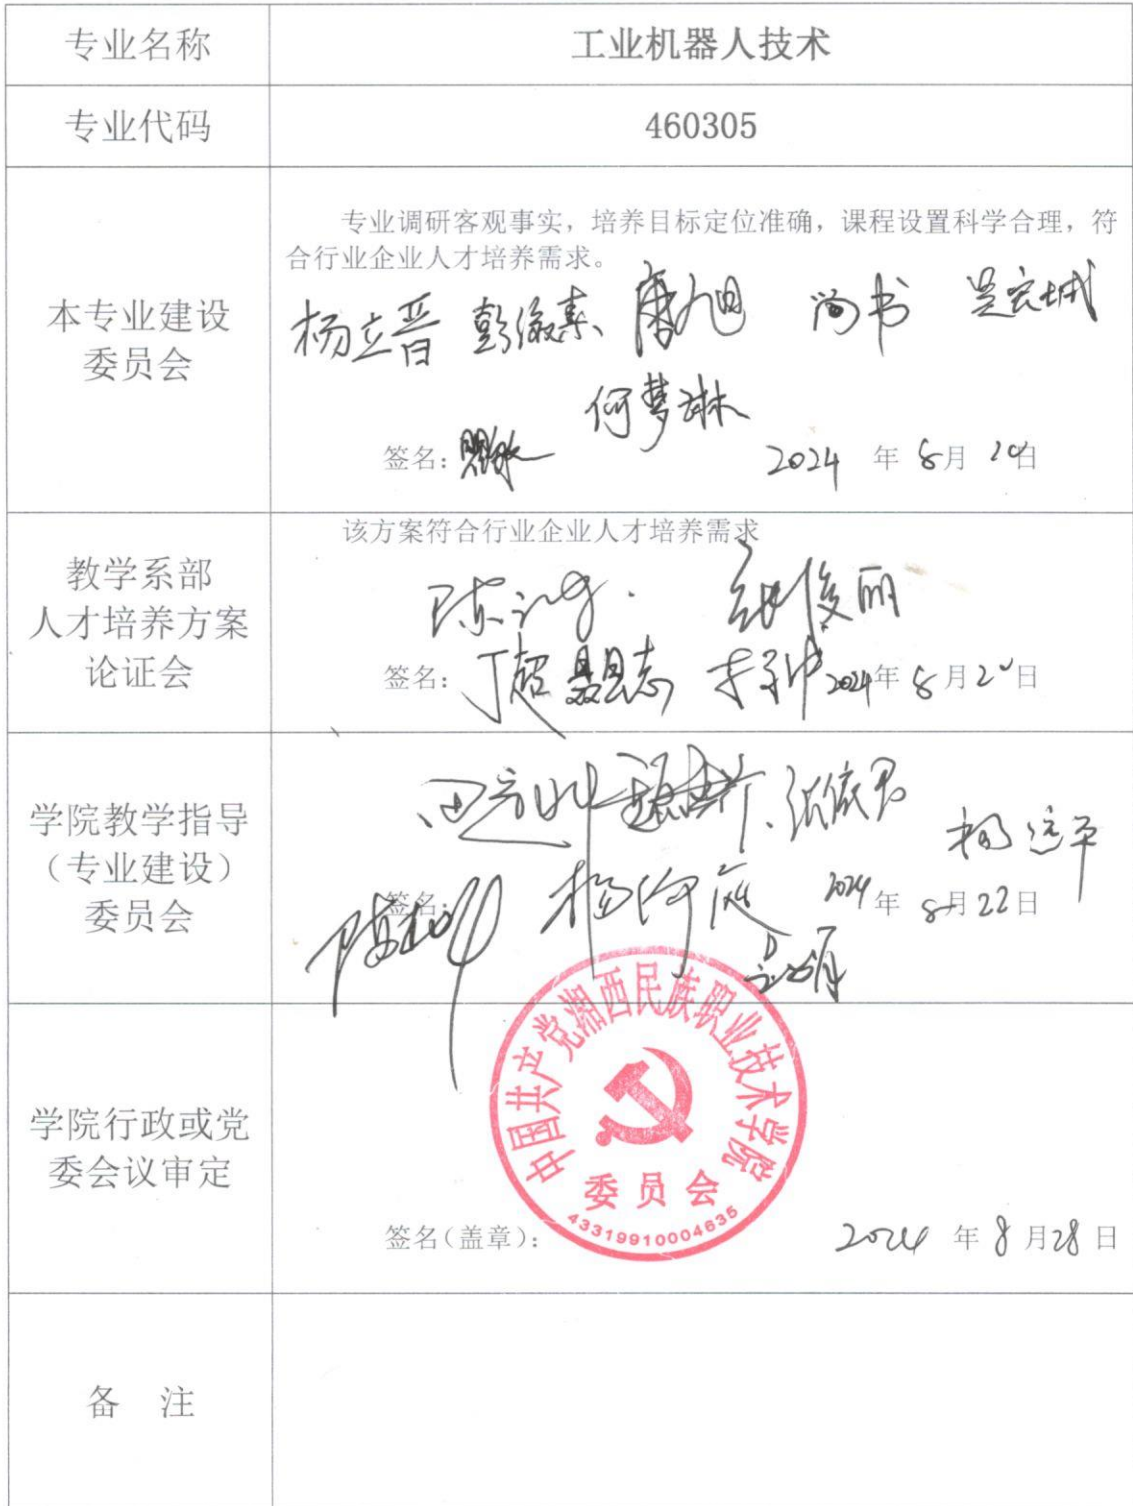 专业名称
工业机器人技术
专业代码
460305
本专业建设
委员会
专业调研客观事实，培养目标定位准确，课程设置科学合理，符
合行业企业人才培养需求。
杨立晋
何梦琳
签名：
2024 年 8月 20日
教学系部
人才培养方案
论证会
该方案符合行业企业人才培养需求
签名：丁超
2024年 8月20日
学院教学指导
（专业建设）
委员会
签名：
2024年 8月22日
学院行政或党
委会议审定
中国共产党湘西民族职业技术学院
委员会
43319910004635
签名(盖章)：
2024 年 8 月28日
备 注